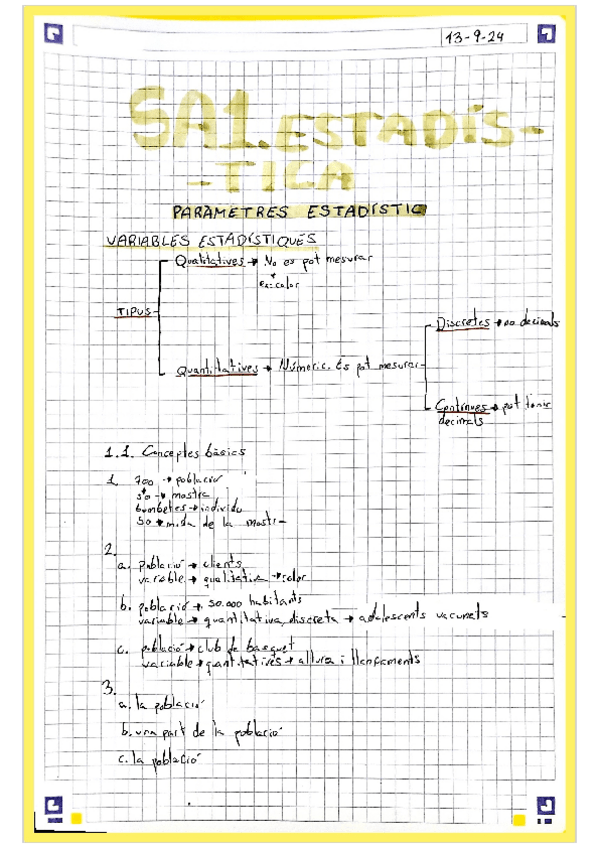 13-9-24
SA1. ESTADÍS-
-TICA
PARÀMETRES ESTADÍSTIC
VARIABLES ESTADÍSTIQUES
Qualitatives → No es pot mesurar
ex: color
TIPUS
Discretes → no decimals
Quantitatives → Númeric. Es pot mesurar
Contínues → pot tenir
decimals
1.1. Conceptes bàsics
1. 700 → població
50 → mostra
bombetes → individu
50 → mida de la mostra
2.
a. població → clients
variable → qualitativa → color
b. població → 50.000 habitants
variable → quantitativa, discreta → adolescents vacunats
c. població → club de basquet
variable → quantitatives → altura i llançaments
3.
a. la població
b. una part de la població
c. la població